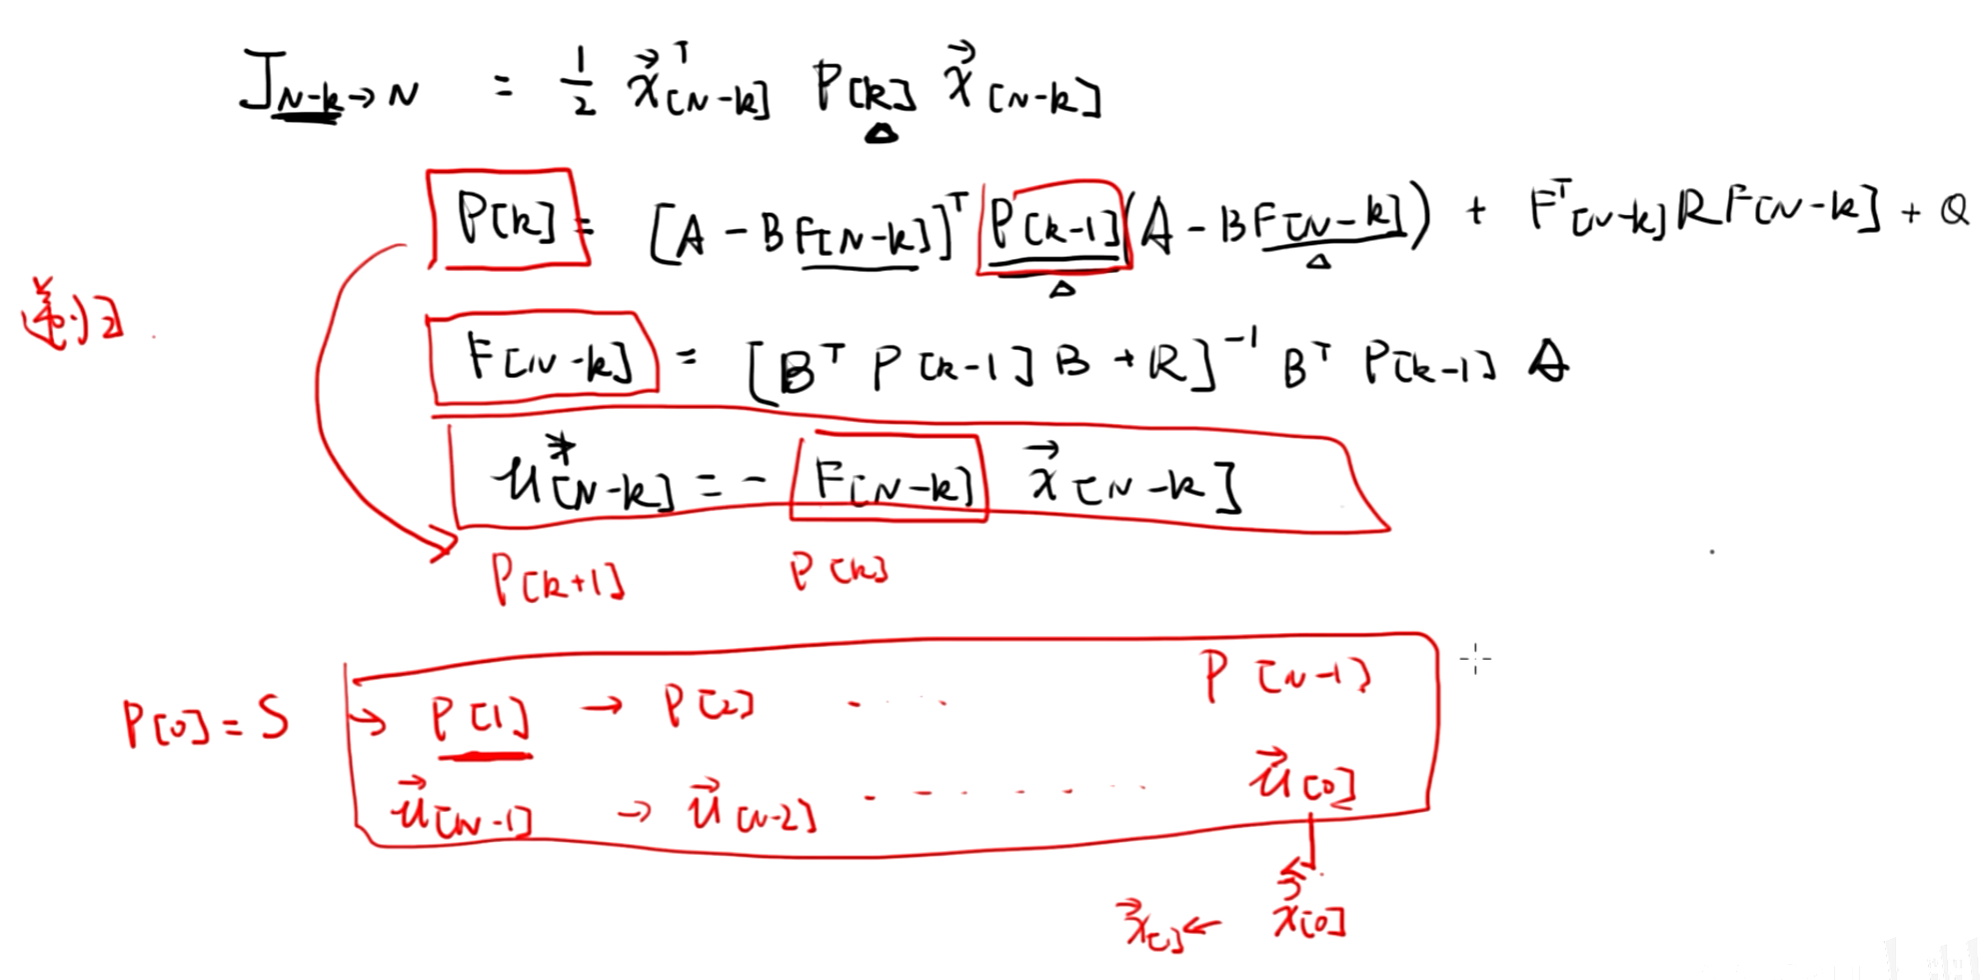 J_{N-k→N} = 1/2 x⃗ᵀ[N-k] P[k] x⃗[N-k]
P[k] = [A - BF[N-k]]ᵀ P[k-1] (A - BF[N-k]) + Fᵀ[N-k] R F[N-k] + Q
F[N-k] = [Bᵀ P[k-1] B + R]⁻¹ Bᵀ P[k-1] A
u*[N-k] = - F[N-k] x⃗[N-k]
P[k+1] P[k]
P[0] = S → P[1] → P[2] ···· P[N-1]
u⃗[N-1] → u⃗[N-2] ········ u⃗[0]
x⃗[1] ← x⃗[0]